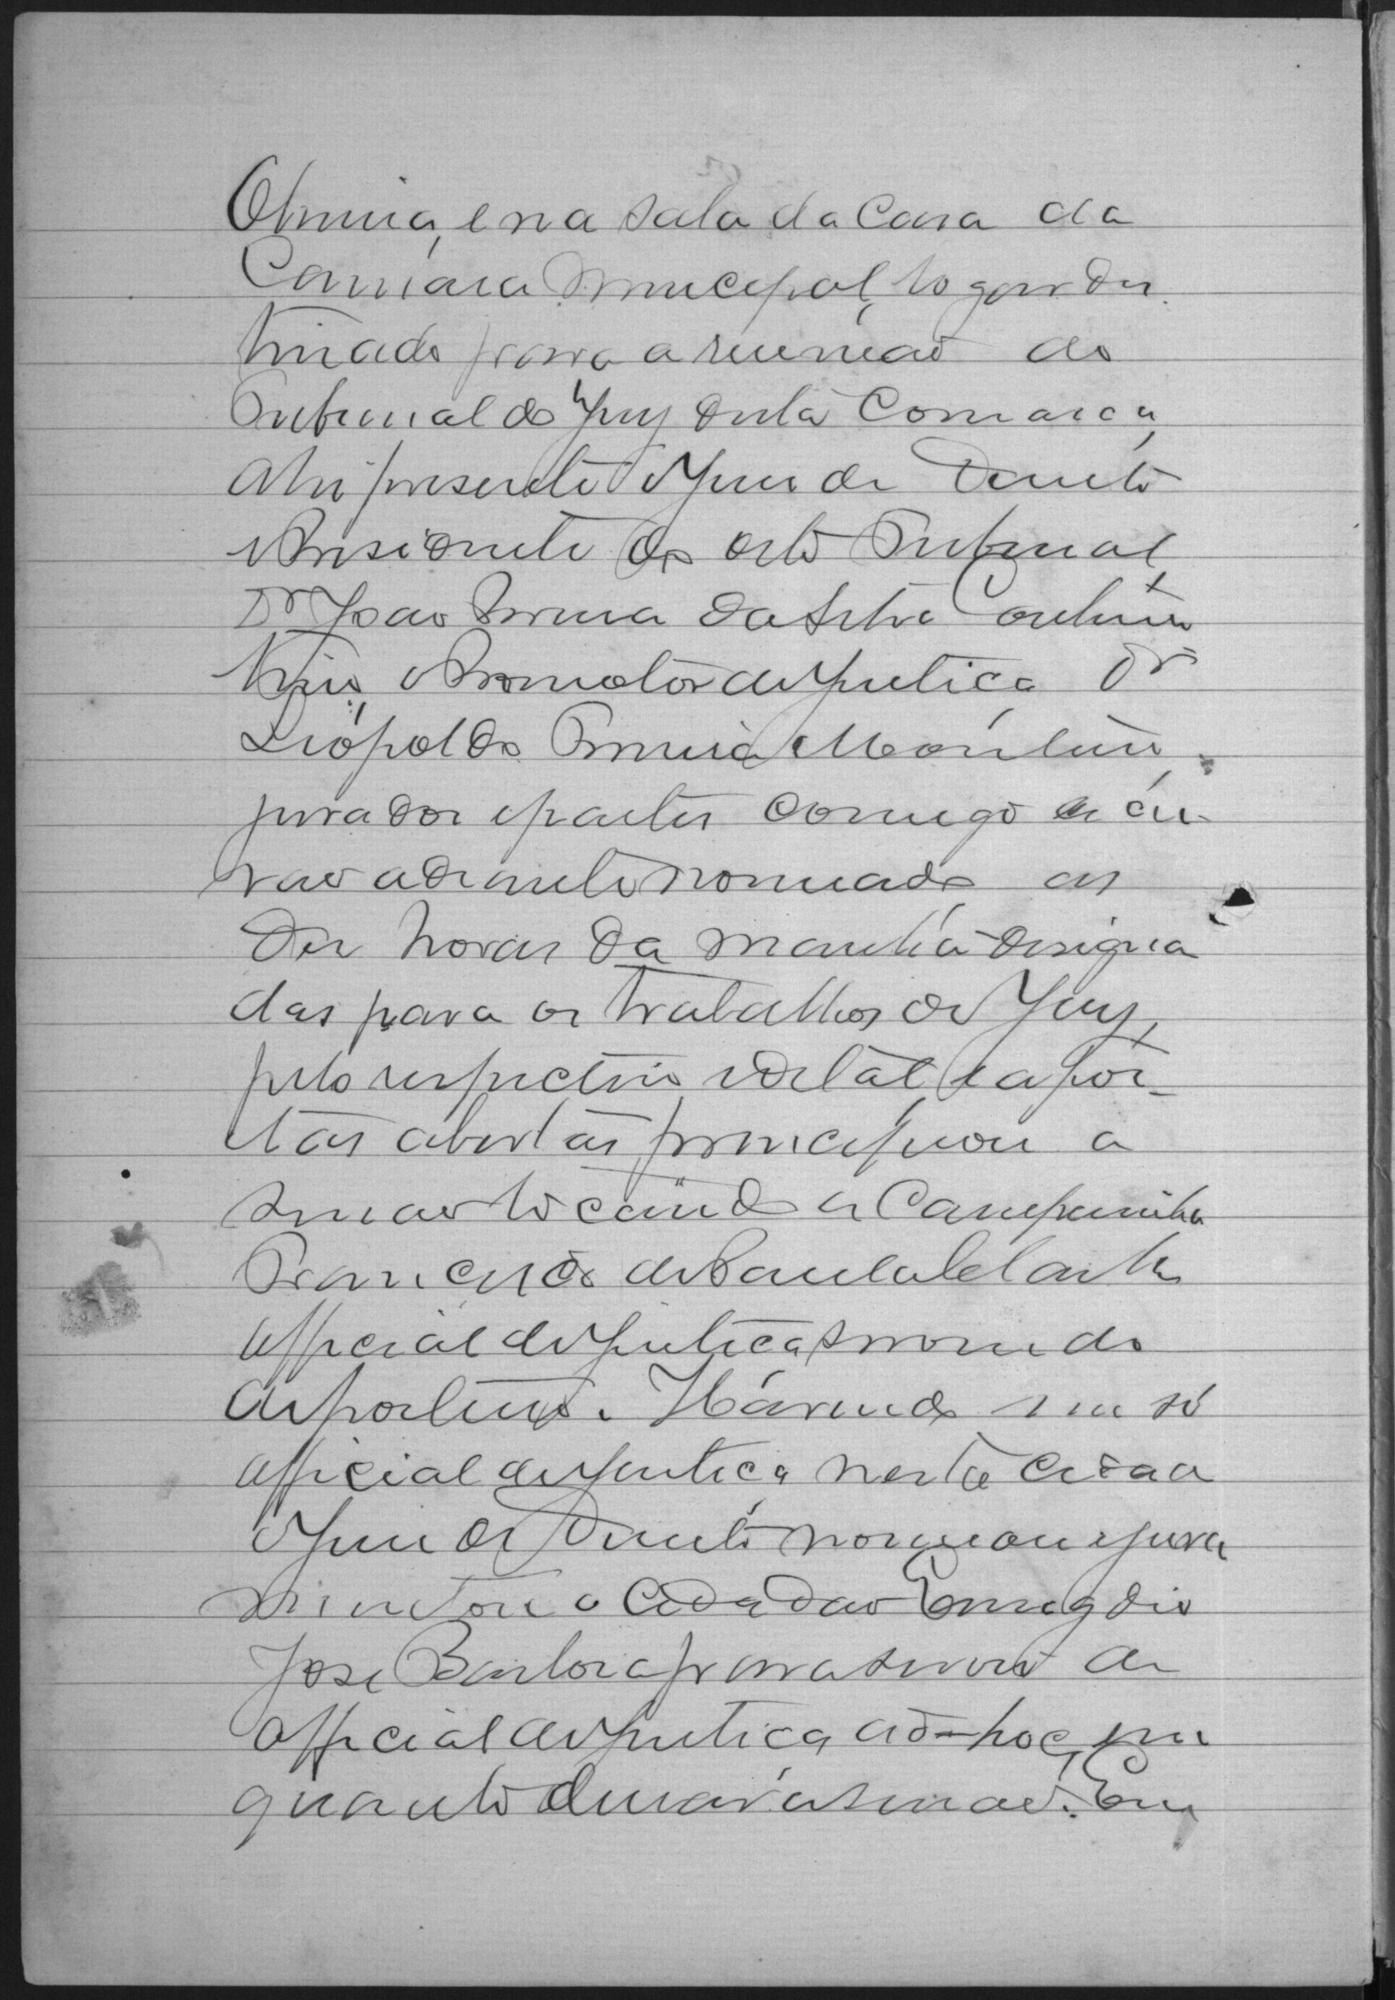 Obmira, e na sala da Casa da
Camara Municipal, logar des
tinado para a reunião do
Tribunal do Jury desta Comarca,
ahi presente o Juiz de Direito
e Presidente do dito Tribunal,
Dr João Pereira da Silva Continen
tino, o Promotor de Justiça Dr
Leopoldo Ferreira Monteiro,
jurados e partes comigo escri
vão adiante nomeado as
dez horas da manhã designa
das para os trabalhos do Jury,
pelo respectivo edital, e a por
tas abertas, principiou a
sessão tocando a Campainha
Francisco de Paula
official de justiça servindo
de porteiro. Havendo um só
official de justiça nesta cidade
o Juiz de Direito nomeou e jura
mentou o Cidadão Emygdio
José Barbosa para servir de
official de justiça ad-hoc, em
quanto durar a sessão. Em